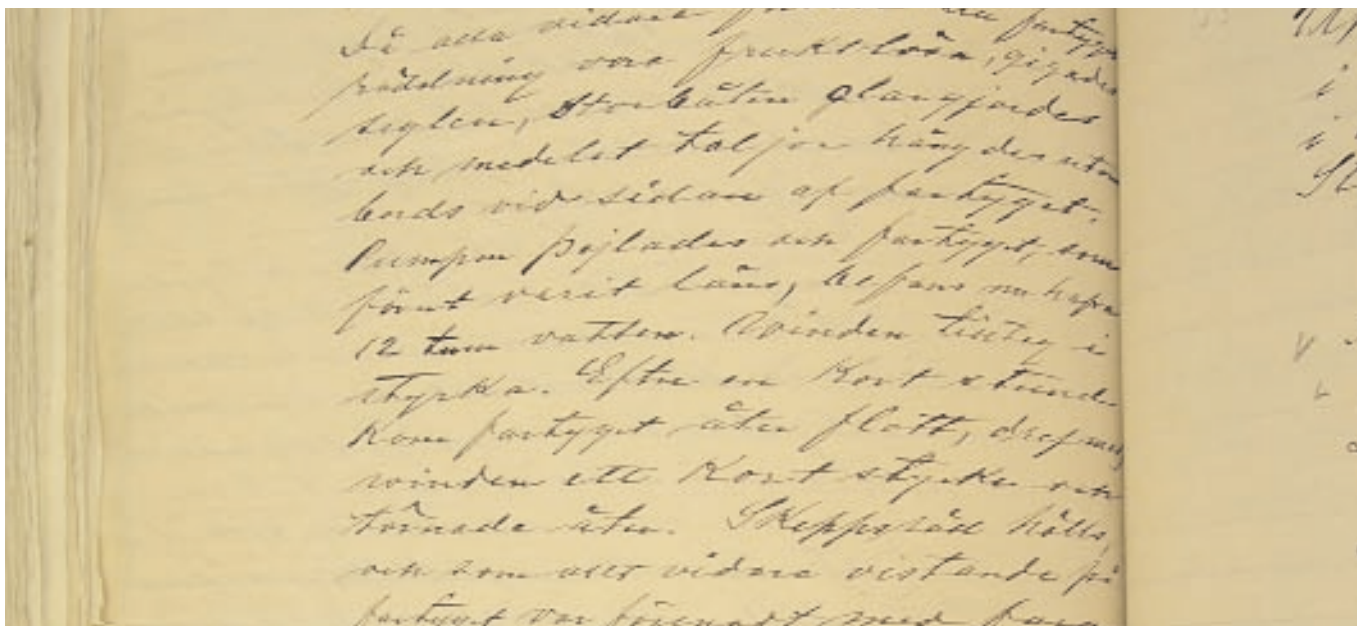 Då alla vidare fartygets
räddning voro fruktlösa, gigades
seglen, Storbåten klargjordes
och medelst taljor hängdes utom
bords vid sidan af fartyget.
Pumpen pejlades och fartyget, som
förut varit läns, befans nu hafva
12 tum vatten. Vinden tilltog i
styrka. Efter en kort stund
kom fartyget åter flott, dref med
vinden ett kort stycke och
törnade åter. Skeppsråd hölls,
och som allt vidare vistande på
fartyget var förenadt med fara
i
i